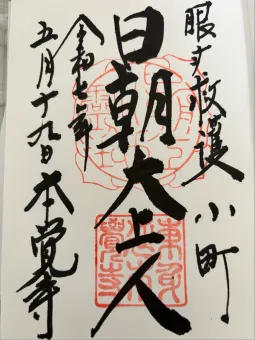 眼守救護 小町
日朝大上人
令和七年
五月十九日 本覚寺